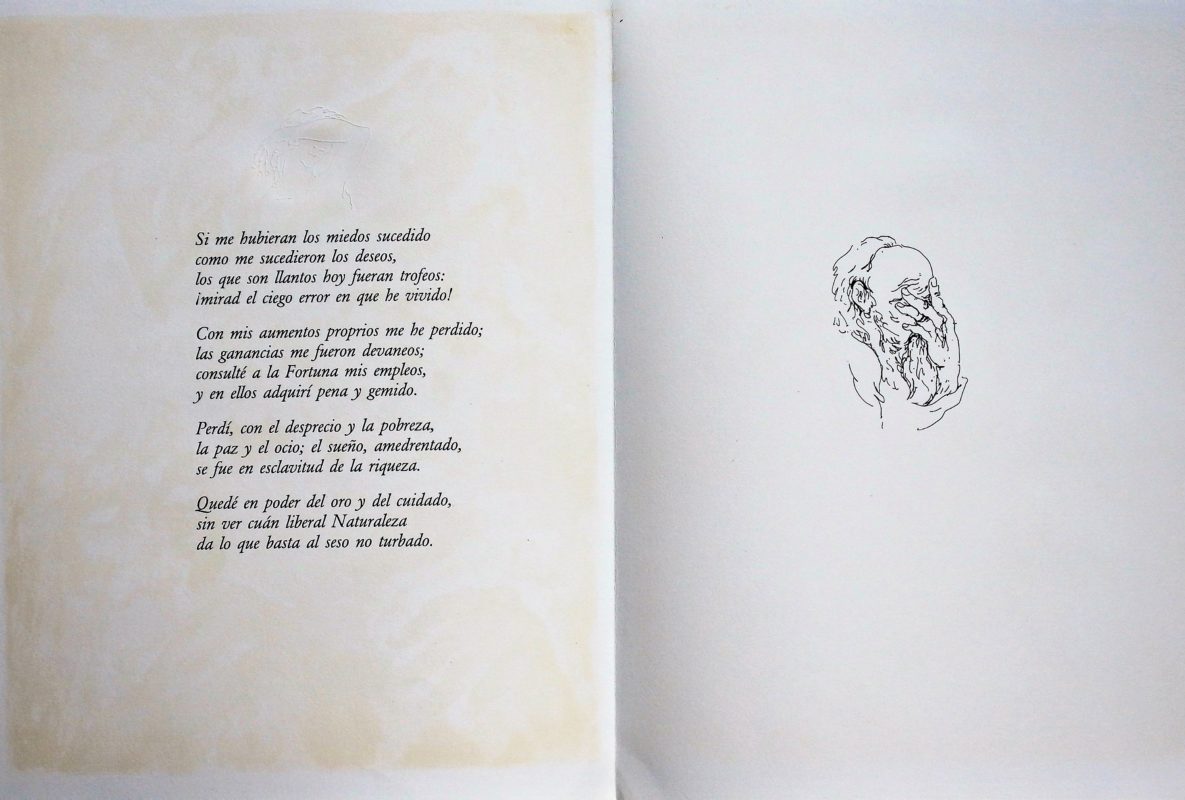 Si me hubieran los miedos sucedido
como me sucedieron los deseos,
los que son llantos hoy fueran trofeos:
¡mirad el ciego error en que he vivido!
Con mis aumentos proprios me he perdido;
las ganancias me fueron devaneos;
consulté a la Fortuna mis empleos,
y en ellos adquirí pena y gemido.
Perdí, con el desprecio y la pobreza,
la paz y el ocio; el sueño, amedrentado,
se fue en esclavitud de la riqueza.
Quedé en poder del oro y del cuidado,
sin ver cuán liberal Naturaleza
da lo que basta al seso no turbado.